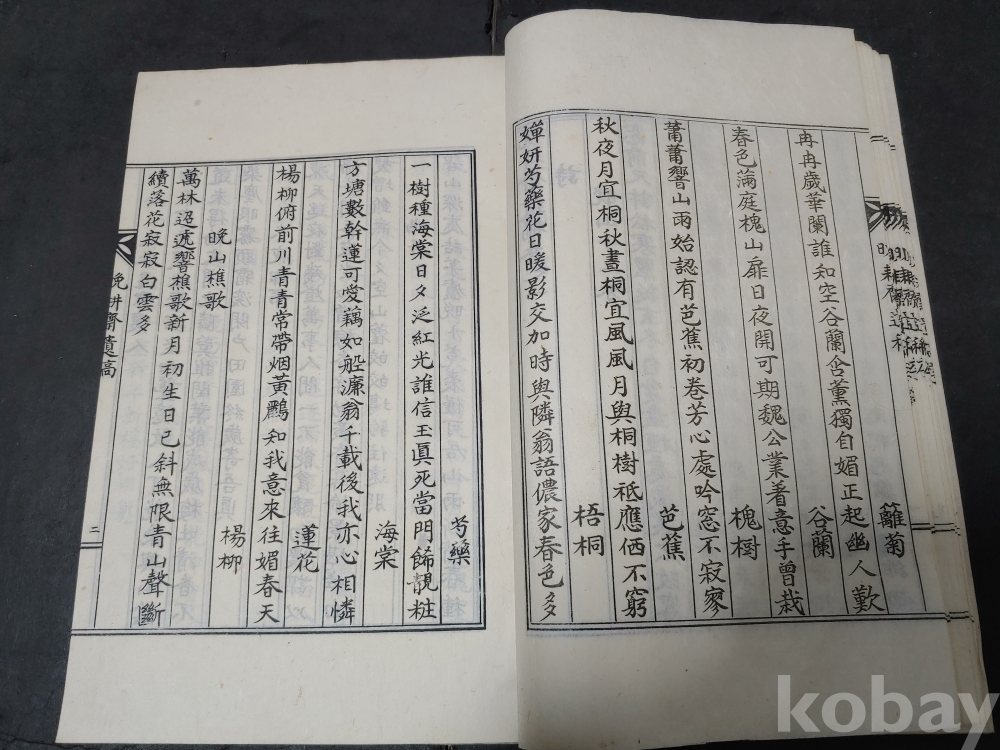 籬菊
冉冉歲華闌誰知空谷蘭含薰獨自媚正起幽人歎
谷蘭
春色滿庭槐山扉日夜開可期魏公業着意手曾栽
槐樹
蕭蕭響山雨始認有芭蕉初卷芳心處吟窓不寂寥
芭蕉
秋夜月宜桐秋晝桐宜風風月與桐樹祗應恓不窮
梧桐
嬋妍芍藥花日暖影交加時與隣翁語儂家春色多
芍藥
一樹種海棠日夕泛紅光誰信玉眞死當門餙靚粧
海棠
方塘數幹蓮可愛藕如船濂翁千載後我亦心相憐
蓮花
楊柳俯前川青青常帶烟黃鸝知我意來往媚春天
楊柳
晩山樵歌
萬林迢遞響樵歌新月初生日已斜無限青山聲斷
續落花寂寂白雲多
晩耕齋遺稿
二
kobay